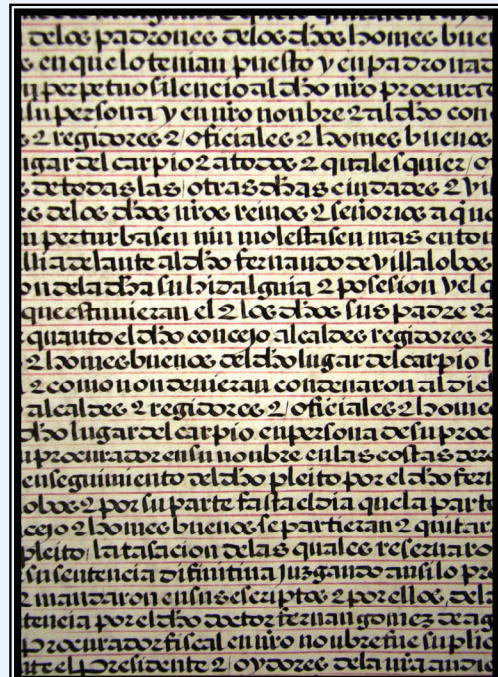 delos padrones delos dhos homes buen
s en que lo tenian puesto y enpadronad
n perpetuo silencio al dho nro procurad
su persona y en nro nonbre 2 al dho con
s 2 regidores 2 oficiales 2 homes buenos
ugar del carpio 2 a todos 2 quales quier o
s de todas las otras dhas ciudades 2 vil
es delos dhos nros reinos 2 señorios a que
n perturbasen nin molestasen mas en to
lli adelante al dho fernando de villalobos
on dela dha su hidalguia 2 posesion vel q
que estuvieran el 2 los dhos sus padre 2 a
quanto el dho concejo alcaldes regidores 2
2 homes buenos del dho lugar del carpio l
2 como non devieran condenaron al dich
alcaldes 2 regidores 2 oficiales 2 home
dho lugar del carpio en persona de su proc
u procurador en su nonbre en las costas dere
en seguimiento del dho pleito por el dho fern
obos 2 por su parte fasta el dia que la parte
cejo 2 homes buenos se partieran 2 quitar
pleito la tasacion delas quales reservaro
su sentencia difinitiva juzgando ansi lo pro
2 mandaron en sus escriptos 2 por ellos dela
tencia por el dho doctor fernan gomez de ag
Procurador fiscal en nro nonbre fue suplic
nte el Presidente 2 oydores dela nra audie